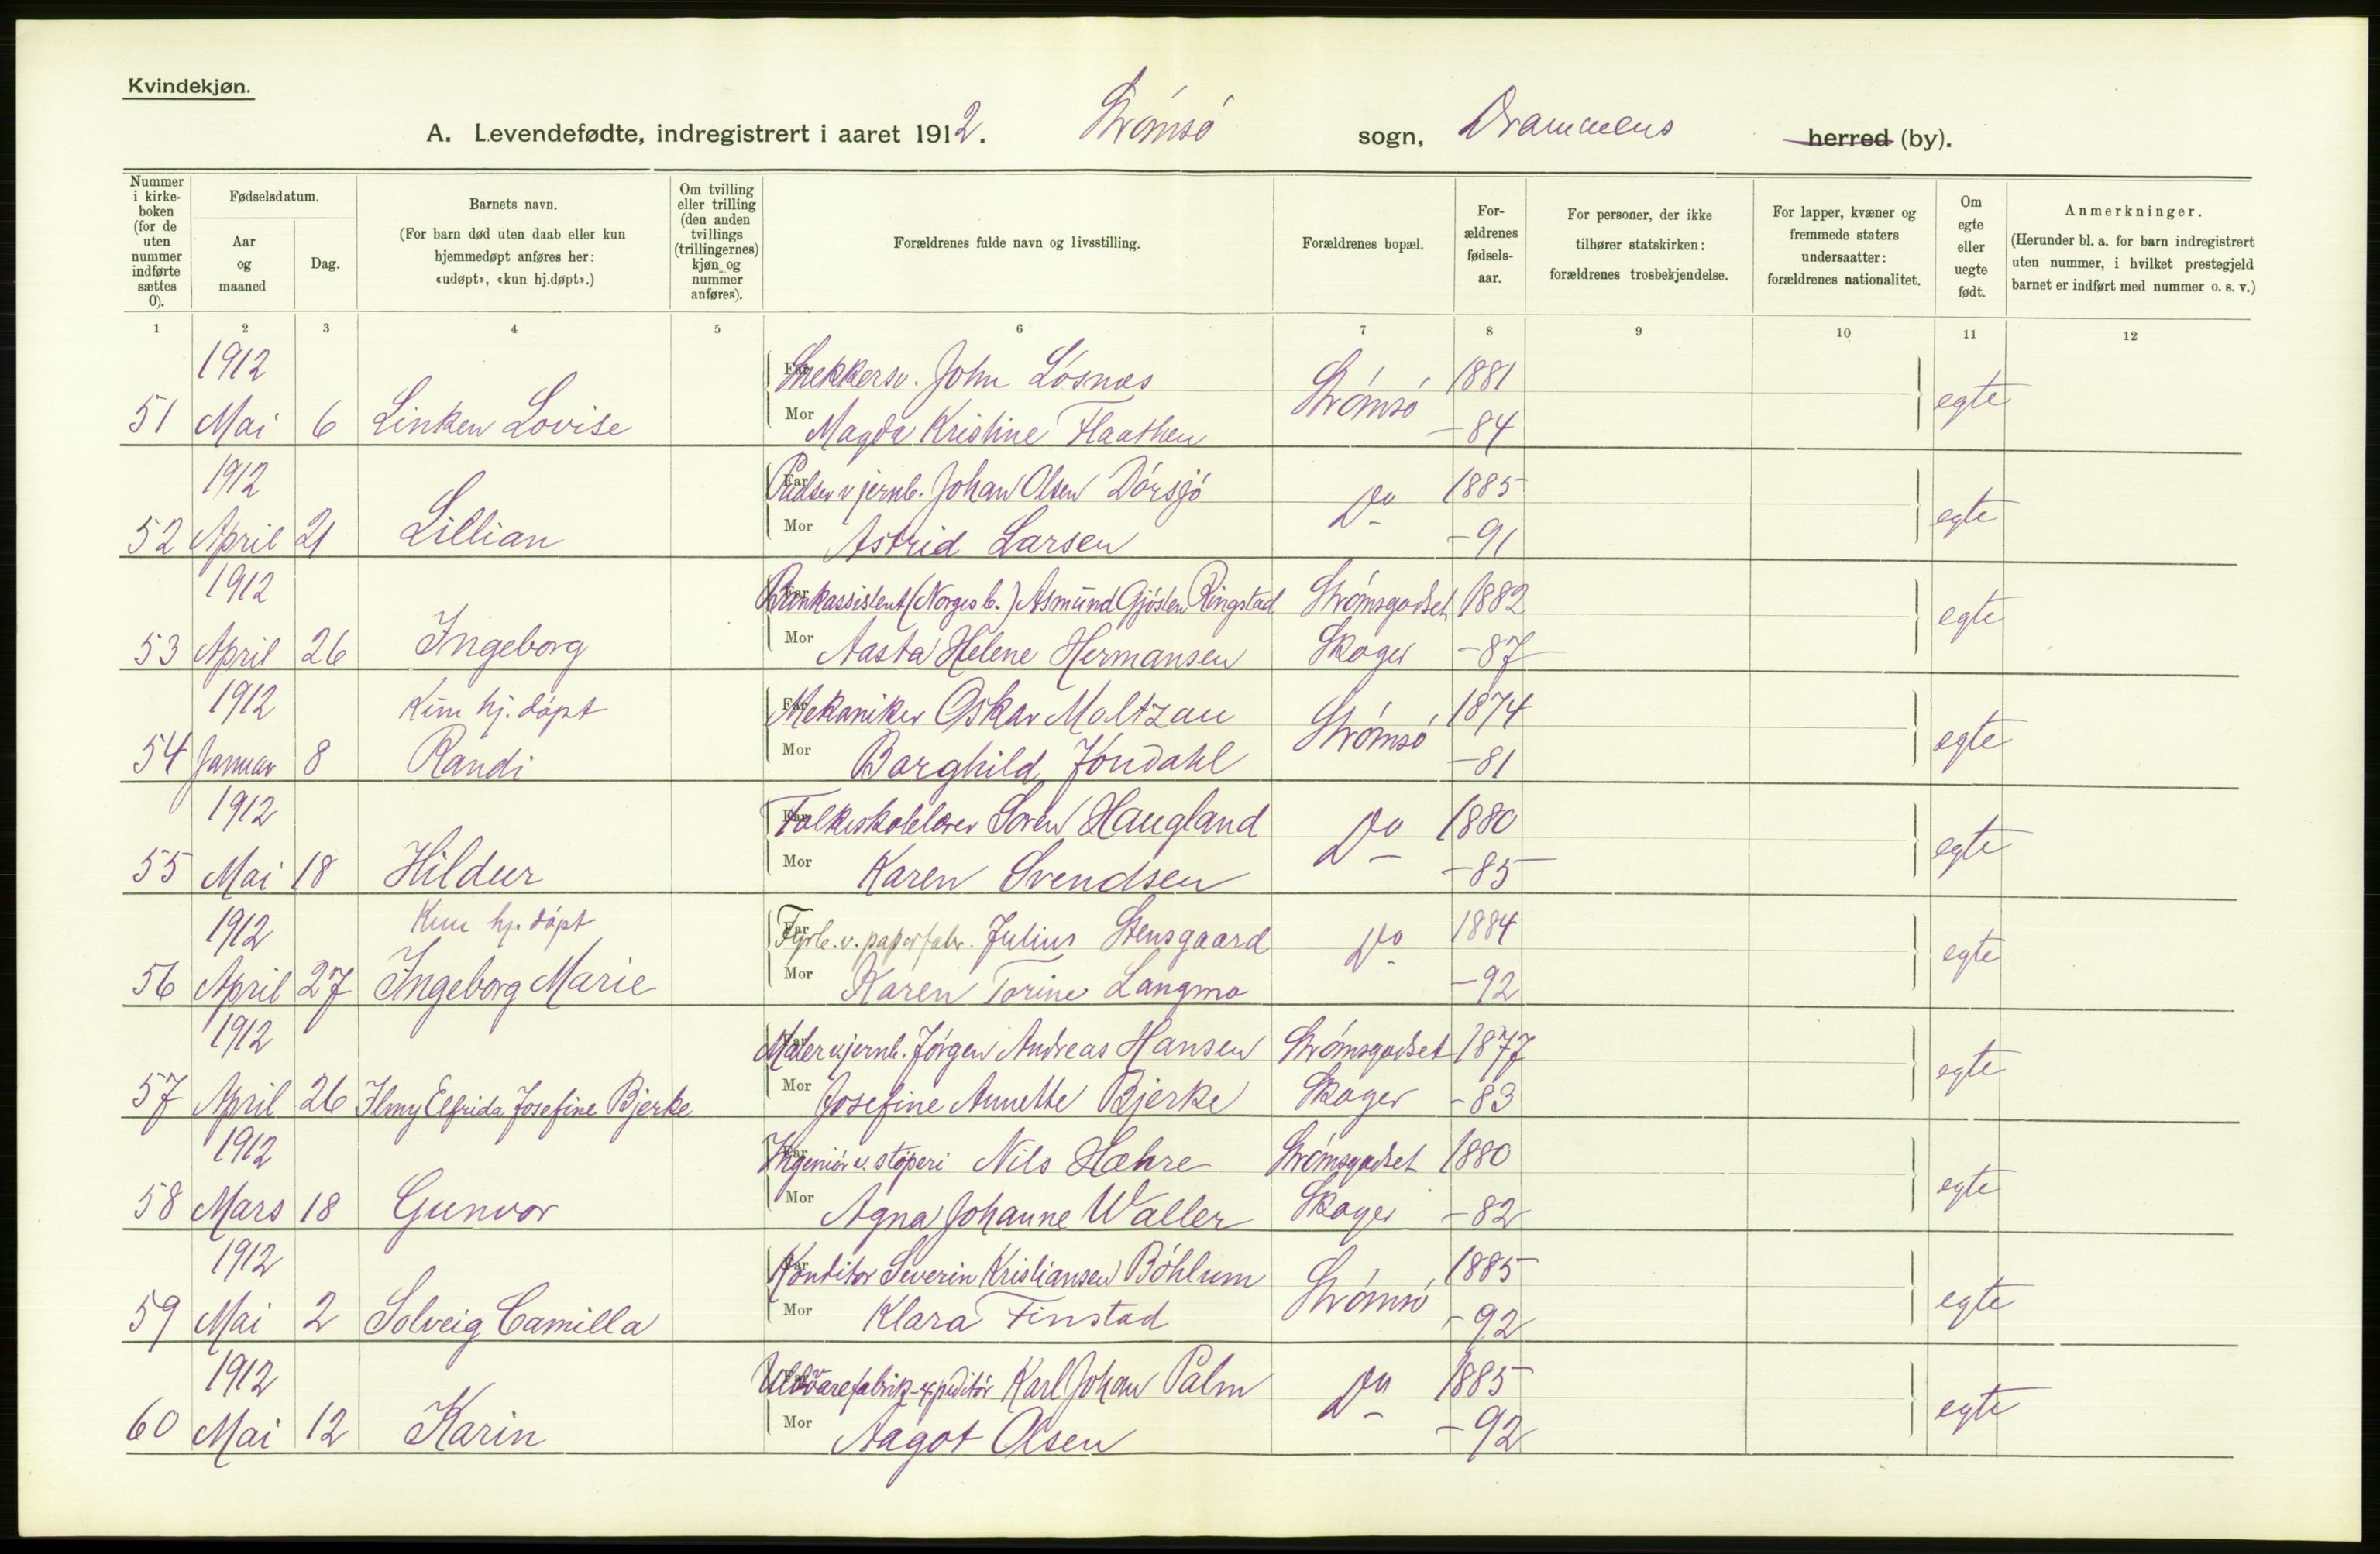 Kvindekjøn.
A. Levendefødte, indregistrert i aaret 1912. Strømsø sogn, Drammens herred (by).
Nummer i kirke-boken (for de uten nummer indførte sættes 0).
Fødselsdatum.
Aar og maaned
Dag.
Barnets navn.
(For barn død uten daab eller kun hjemmedøpt anføres her: «udøpt», «kun hj.døpt».)
Om tvilling eller trilling (den anden tvillings (trillingernes) kjøn og nummer anføres).
Forældrenes fulde navn og livsstilling.
Forældrenes bopæl.
For-ældrenes fødsels-aar.
For personer, der ikke tilhører statskirken: forældrenes trosbekjendelse.
For lapper, kvæner og fremmede staters undersaatter: forældrenes nationalitet.
Om egte eller uegte født.
Anmerkninger.
(Herunder bl. a. for barn indregistrert uten nummer, i hvilket prestegjeld barnet er indført med nummer o. s. v.)
1 2 3 4 5 6 7 8 9 10 11 12
1912 Far Snekkersv. John Løsnæs Strømsø 1881
51 Mai 6 Linken Lovise Mor Magda Kristine Flaathen -84 egte
1912 Far Pudser v jernb. Johan Olsen Dørsjø Do 1885
52 April 21 Lillian Mor Astrid Larsen -91 egte
1912 Far Bankassistent (Norges b.) Asmund Gjøslen Ringstad Strømsgodset 1882
53 April 26 Ingeborg Mor Aasta Helene Hermansen Skoger -87 egte
1912 Kun hj. døpt Far Mekaniker Oskar Moltzau Strømsø 1874
54 Januar 8 Randi Mor Borghild Jøndahl -81 egte
1912 Far Folkeskolelærer Søren Haugland Do 1880
55 Mai 18 Hildur Mor Karen Svendsen -85 egte
1912 Kun hj. døpt Far Fyrb. v. papirfabr. Julius Stensgaard Do 1884
56 April 27 Ingeborg Marie Mor Karen Torine Langmo -92 egte
1912 Far Maler v jernb. Jørgen Andreas Hansen Strømsgodset 1877
57 April 26 Ilmy Elfrida Josefine Bjerke Mor Josefine Annette Bjerke Skoger -83 egte
1912 Far Ingeniør v. støperi Nils Hæhre Strømsgodset 1880
58 Mars 18 Gunvor Mor Agna Johanne Waller Skoger -82 egte
1912 Far Konditor Severin Kristiansen Bøhlum Strømsø 1885
59 Mai 2 Solveig Camilla Mor Klara Finstad -92 egte
1912 Far Uldvarefabrik-expeditør Karl Johan Palm Do 1885
60 Mai 12 Karin Mor Aagot Olsen -92 egte